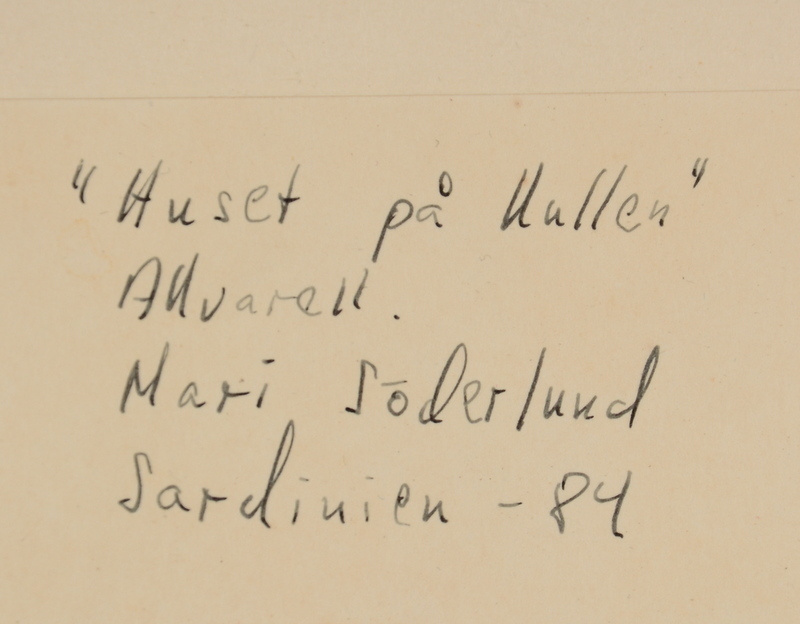 "Huset på Kullen"
Akvarell.
Mari Söderlund
Sardinien - 84